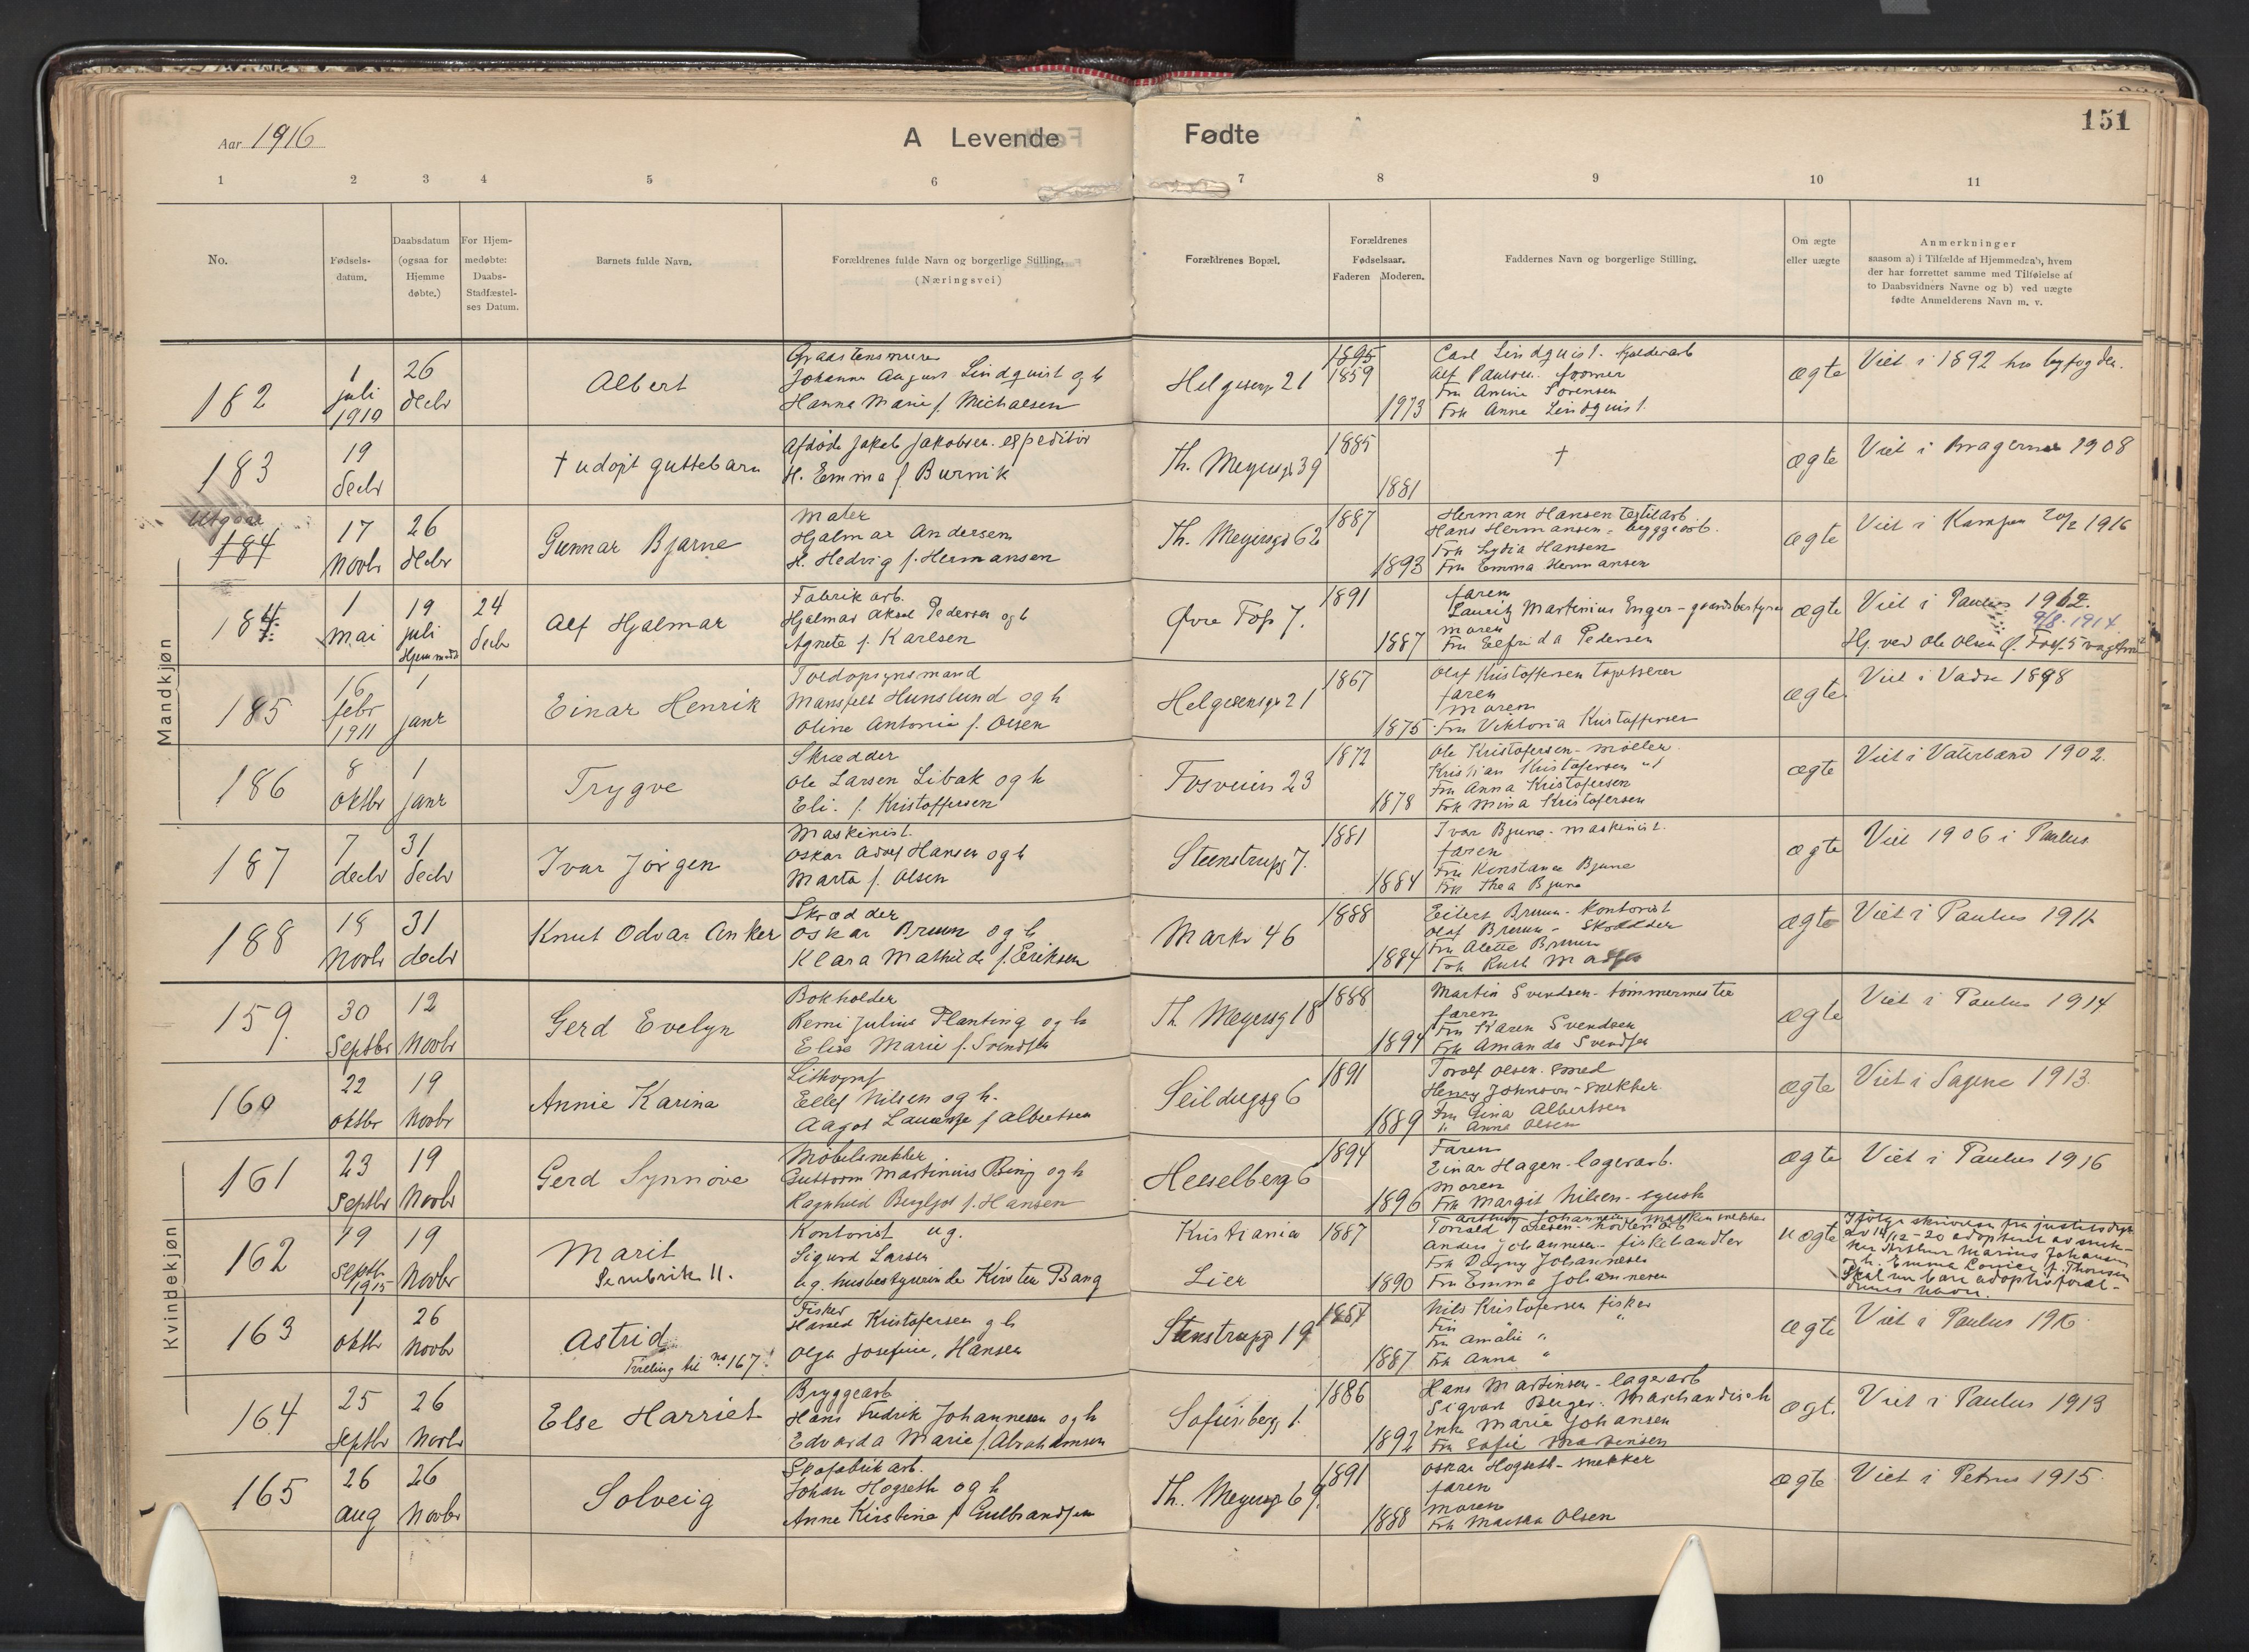 Aar 1916
A Levende Fødte
151
1 2 3 4 5 6 7 8 9 10 11
No.
Fødsels-
datum.
Daabsdatum
(ogsaa for
Hjemme
døbte.)
For Hjem-
medøbte:
Daabs-
Stadfæstel-
ses Datum.
Barnets fulde Navn.
Forældrenes fulde Navn og borgerlige Stilling.
(Næringsvei)
Forældrenes Bopæl.
Forældrenes
Fødselsaar.
Faderen Moderen.
Faddernes Navn og borgerlige Stilling.
Om ægte
eller uægte
Anmerkninger
saasom a) i Tilfælde af Hjemmedaab, hvem
der har forrettet samme med Tilføielse af
to Daabsvidners Navne og b) ved uægte
fødte Anmelderens Navn m. v.
Mandkjøn
182
1
juli
1910
26
decbr
Albert
Graastensmurer
Johann August Lindquist og h
Hanna Marie f. Michalsen
Helgesensg 21
1895
1859
1913
Carl Lindquist. kjelderarb
Alf Paulsen. former
Fru Amine Sørensen
Frk Anna Lindquist.
ægte
Viet i 1892 hos byfogden.
183
19
decbr
† udøpt guttebarn
Afdøde Jakob Jakobsen. expeditør
H. Emma f. Burnik
Th. Meyersgt 39
1885
1881
†
ægte
Viet i Bragernes 1908
Utgaar
184
17
Novbr
26
decbr
Gunnar Bjarne
Maler
Hjalmar Andersen
H. Hedvig f. Hermansen
Th. Meyersgt 62
1887
1893
Herman Hansen Textilarb.
Hans Hermansen - byggearb.
Frk Lydia Hansen
Fru Emma Hermansen
ægte
Viet i Kampen 20/2 1916
184
1
Mai
19
juli
Hjemmed
24
decbr
Alf Hjalmar
Fabrik arb.
Hjalmar Aksel Pedersen og h
Agnete f. Karlsen
Øvre Fos 7.
1891
1887
faren
Lauritz Martinius Enger - gaardsbestyrer
moren
Fru Elfrida Pedersen
ægte
Viet i Paulus 1912.
9/8. 1914
Hj. ved Ole Olsen Ø. Fos f. 5
185
16
febr
1911
1
janr
Einar Henrik
Toldopsynsmand
Mansfelt Hunslund og h
Oline Antonie f. Olsen
Helgesensgt 21
1867
1875
Olaf Kristoffersen tapetserer
faren
moren
Fru Viktoria Kristoffersen
ægte
Viet i Vadsø 1898
186
8
Oktbr
1
janr
Trygve
Skrædder
Ole Larsen Libak og h
Eli. f. Kristoffersen
Fosveien 23
1872
1878
Ole Kristofersen - møller.
Kristian Kristofersen "
Fru Anna Kristofersen
Frk Mina Kristofersen
ægte
Viet i Vaterland 1902.
187
7
decbr
31
decbr
Ivar Jørgen
Maskinist.
Oskar Adolf Hansen og h
Marta f. Olsen
Steenstrupg 7.
1881
1884
Ivar Bjune - maskinist.
faren
Fru Konstance Bjune
Frk Thea Bjune
ægte
Viet 1906 i Paulus
188
18
Novbr
31
decbr
Knut Odvar Anker
Skrædder
Oskar Bruun og h
Klara Mathilde f. Eriksen
Markv 46
1888
1884
Eilert Bruun - kontorist
Olaf Bruun - Skrædder
Fru Alette Bruun
Frk Ruth
ægte
Viet i Paulus 1912
Kvindekjøn
159.
30
Septbr
12
Novbr
Gerd Evelyn
Bokholder
Remi Julius Planting og h
Elise Marie f. Svendsen
Th Meyersg 18
1888
1894
Martin Svendsen - tømmermester
faren
Fru Karen Svendsen
Frk Amanda Svendsen
ægte
Viet i Paulus 1914
160
22
oktbr
19
Novbr
Annie Karina
Lithograf
Ellef Nilsen og h.
Aagot Lauentse f Albertsen
Seildugsg 6
1891
1889
Torolf Olsen. smed
Henry Johnson - snekker
Fru Gina Albertsen
" Anna Olsen
ægte
Viet i Sagene 1913.
161
23
Septbr
19
Novbr
Gerd Synnøve
Møbelsnekker
Guttorm Martinius Bing og h
Ragnhild Bergljot f. Hansen
Hesselberg 6
1894
1896
Faren
Einar Hagen - lagerarb.
Moren
Frk Margit Nilsen - syersk
ægte
Viet i Paulus 1916
162
19
Septbr
1915
19
Novbr
Marit
Se rubrik 11.
Kontorist ug.
Sigurd Larsen
ug. husbestyrerinde Kirsten Bang
Kristiania
Lier
1887
1890
Arthur Johannesen maskinsnekker
Anders Johannesen - fiskehandler
Frk Dagny Johannesen
Fru Emma Johannesen
uægte
Ifølge skrivelse fra justitsdept
av 14/12-20 adoptert av snek-
ker Arthur Marius Johansen
og h. Emma Lovise f. Thoresen
Skal nu bære adoptivforæl-
drenes navn.
163
7
oktbr
26
Novbr
Astrid
Tvilling til no 167.
Fisker
Harald Kristofersen og h
Olga Josefine, Hansen
Stenstrupg 19
1884
1887
Nils Kristofersen fisker
Fin "
Fru Amalie "
Frk Anna "
ægte
Viet i Paulus 1916.
164
25
Septbr
26
Novbr
Else Harriet
Bryggearb
Hans Fredrik Johannesen og h
Edvarda Marie f. Abrahamsen
Sofienbergg 1.
1886
1892
Hans Martinsen - lagerarb
Sigvart Berger. Marchandiseh
Enke Marie Johansen
Fru Sofie Martinsen
ægt.
Viet i Paulus 1913
165
26
Aug
26
Novbr
Solveig
Skofabrik arb.
Johan Hogseth og h
Anne Kirstine f Gulbrandsen
Th. Meyersg 69.
1891
1888
Oskar Hogseth - snekker
faren
moren
Frk Martha Olsen
ægte
Viet i Petrus 1915.